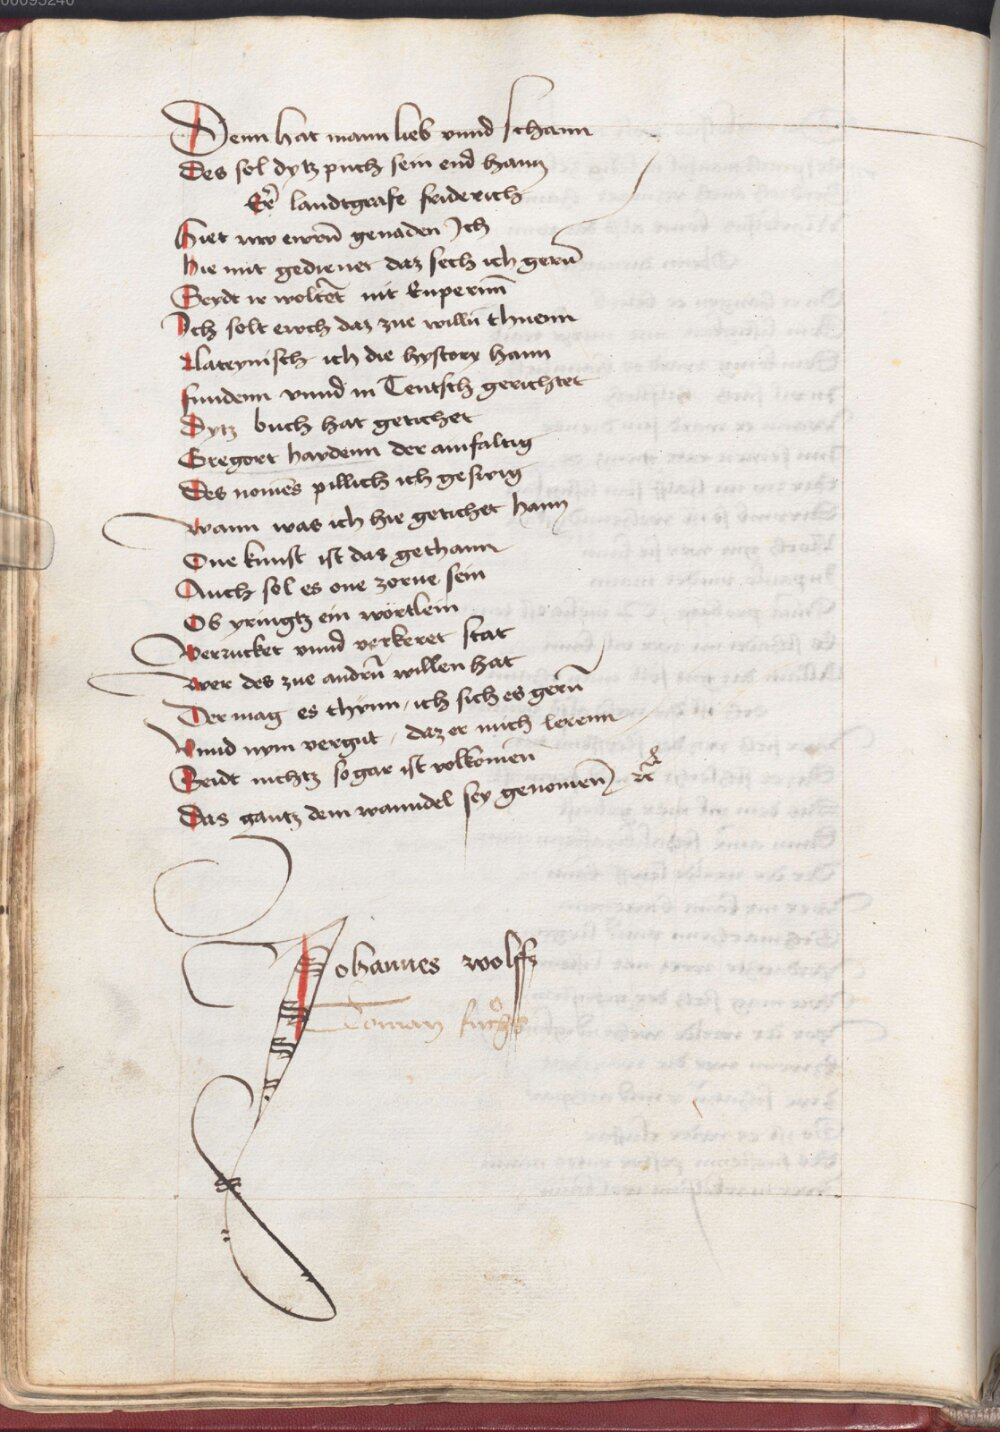 Denn hat mann lieb vnnd schann
Des sol dytz puch sein end hann
Er̃ landtgrafe friderich
Hiet uw ewrñ genaden Ich
hie mit gedienet daz sech ich gerñ
Seydt ir woltẽt nit Enperim̃
Ich solt ewch daz zue willñ thuenn
Lateynisch ich die hystory hann
fundenn vnnd in Teutsch gerichtet
Dytz buch hat getichet
Gregori haydenn der ainfaltig
Des nomẽs pillich ich gesweig
Wann was ich hie getichet hann
One kunst ist das gethann
Auch sol es one zorne sein
Ob yringtz ein wörtlein
Verrucket vnnd verkeret stat
wer des zue andrñ willen hat
Der mag es thünn, ich sich es gerñ
Vnnd nym vergut, daz er mich lerenn
Seidt nichtz so gar ist volkomẽn
Das gantz dem wanndel sey genomẽn
Johannes wolffz
Toman